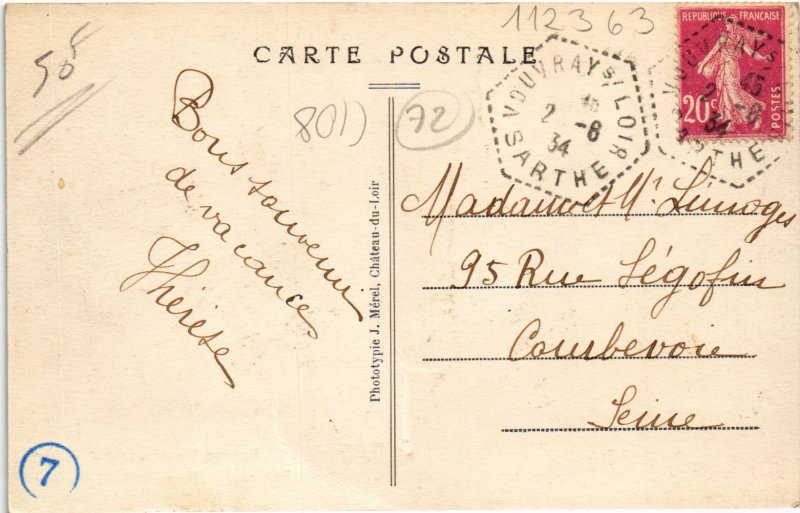 112363
CARTE POSTALE
50F
801)
72
VOUVRAY S/ LOIR
2 -8
34
SARTHE
REPUBLIQUE FRANÇAISE
POSTES
20c
Bons souvenirs
de vacances
Thérèse
Phototypie J. Mérel, Château-du-Loir
Madame et Mr Limoges
95 Rue Ségofin
Courbevoie
Seine
7